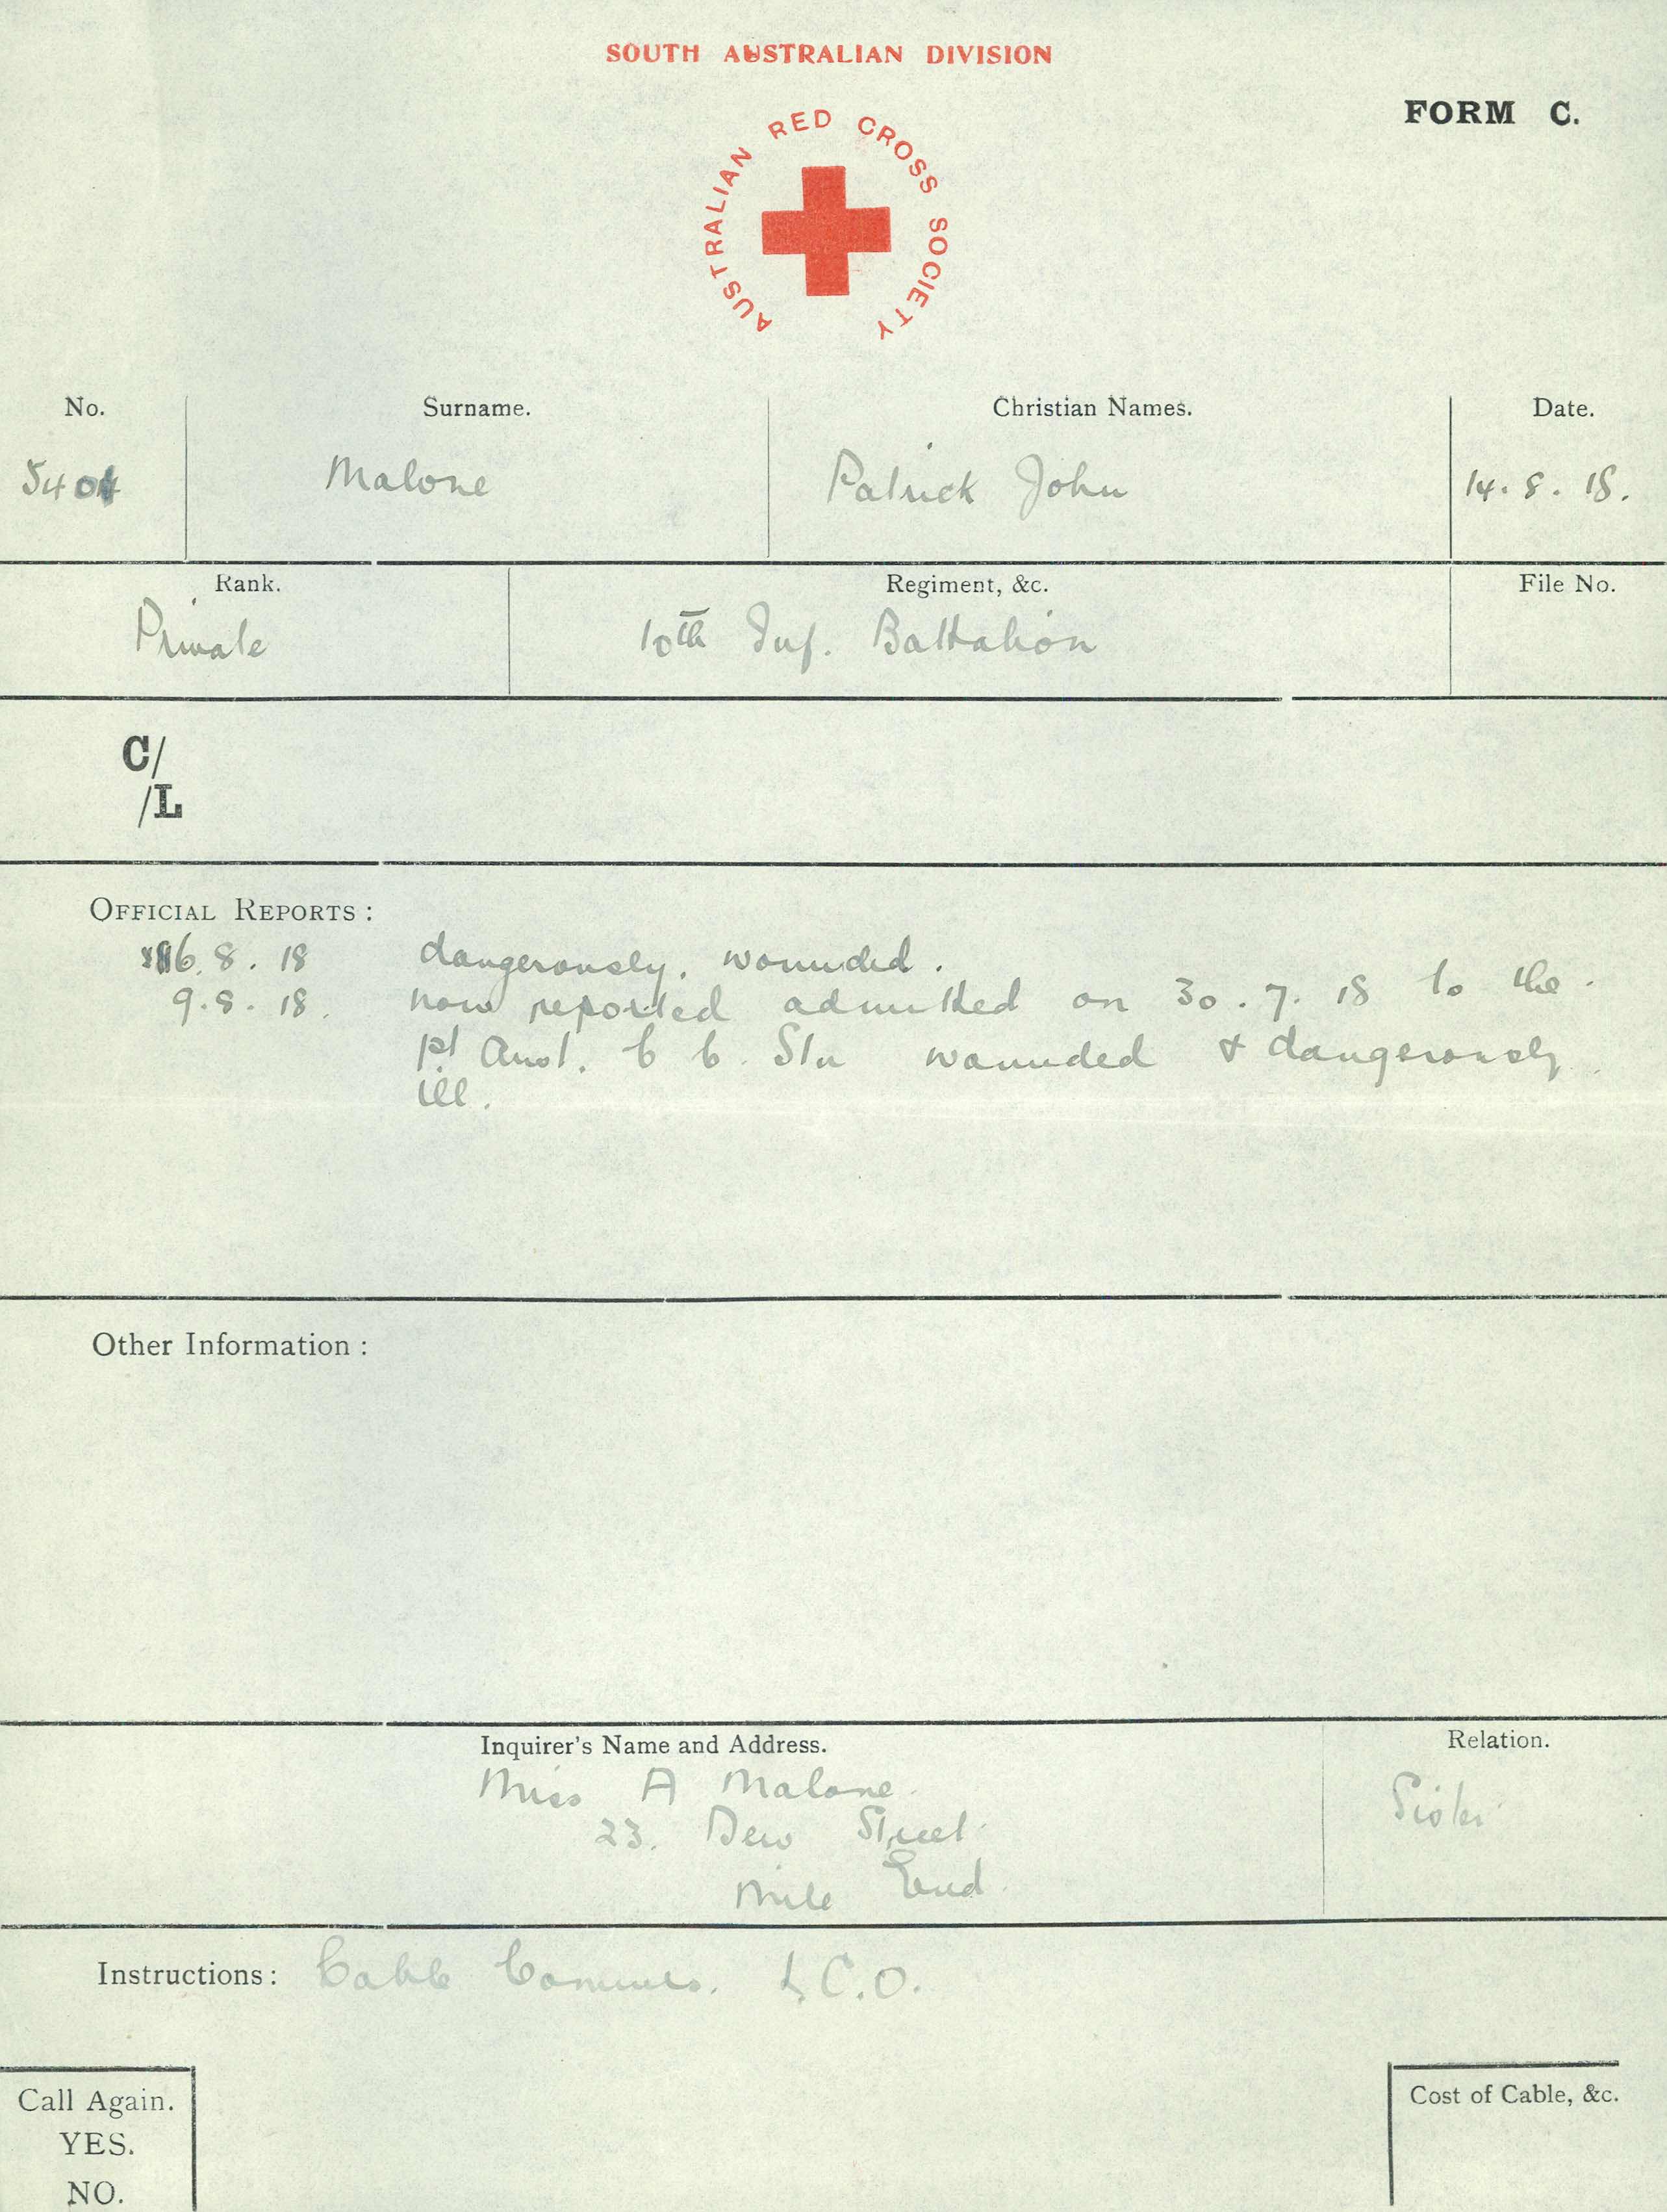 SOUTH AUSTRALIAN DIVISION
FORM C.
AUSTRALIAN RED CROSS SOCIETY
No. Surname. Christian Names. Date.
5404 Malone Patrick John 14.8.18.
Rank. Regiment, &c. File No.
Private 10th Inf. Battalion
C/
/L
OFFICIAL REPORTS:
6.8.18 dangerously. wounded.
9.8.18. now reported admitted on 30.7.18 to the
1st Aust. C C Stn wounded & dangerously
ill.
Other Information:
Inquirer's Name and Address. Relation.
Miss A Malone. Sister
23. Dew Street
Mile End
Instructions: Cable Commrs. L.C.O.
Call Again. Cost of Cable, &c.
YES.
NO.